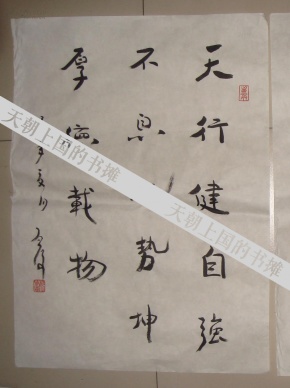 天行健自強
不息勢坤
厚德載物
天朝上国的书摊
天朝上国的书摊